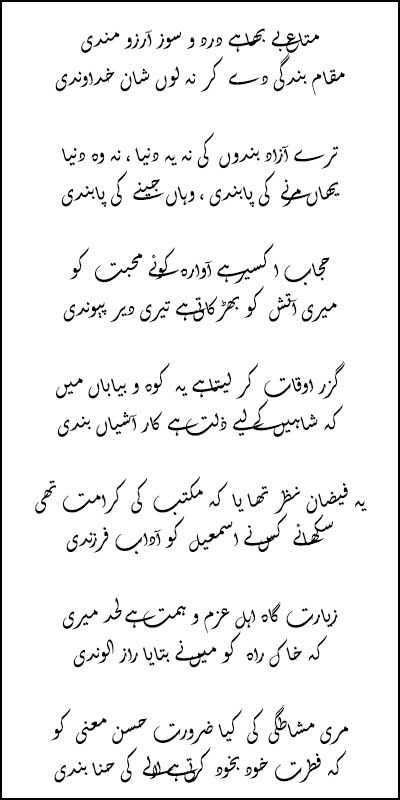 متاع بے بہا ہے درد و سوز آرزو مندی
مقام بندگی دے کر نہ لوں شان خداوندی
ترے آزاد بندوں کی نہ یہ دنیا ، نہ وہ دنیا
یہاں مرنے کی پابندی ، وہاں جینے کی پابندی
حجاب اکسیر ہے آوارہ کوئے محبت کو
میری آتش کو بھڑکاتی ہے تیری دیر پیوندی
گزر اوقات کر لیتا ہے یہ کوہ و بیاباں میں
کہ شاہیں کے لیے ذلت ہے کار آشیاں بندی
یہ فیضان نظر تھا یا کہ مکتب کی کرامت تھی
سکھائے کس نے اسمعیل کو آداب فرزندی
زیارت گاہ اہل عزم و ہمت ہے لحد میری
کہ خاک راہ کو میں نے بتایا راز الوندی
مری مشاطگی کی کیا ضرورت حسن معنی کو
کہ فطرت خود بخود کرتی ہے لالے کی حنا بندی